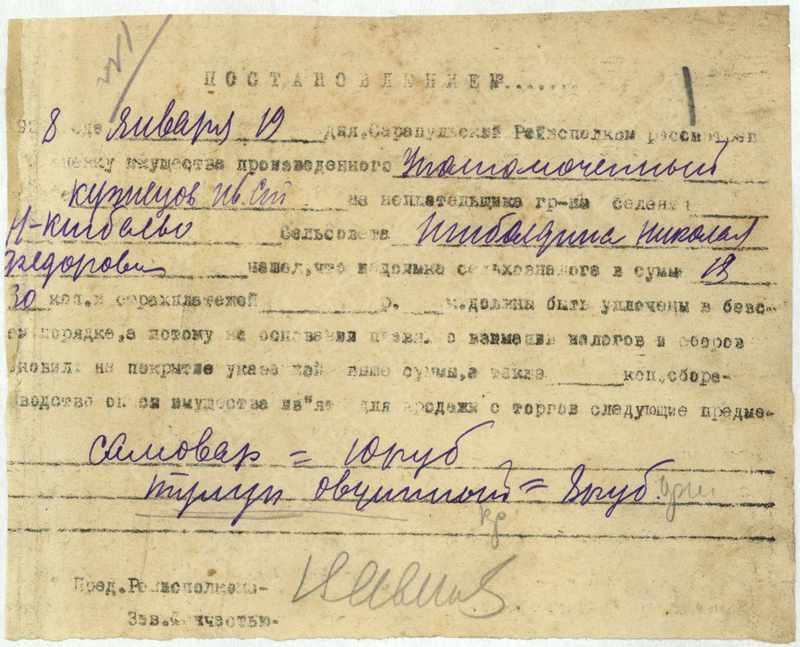 ПОСТАНОВЛЕНИЕ №.......
8 года января 19 дня, Сарапульский Райисполком рассмотрев
имущества произведенного Уполномоченный
Кузнецов Ив.Ст на неплательщика гр-на селения
Н-Кигбаево Сельсовета Николая
Федорови нашел, что недоимка сельхозналога в сумме 13
30 коп. и страхплатежей р. к. должны быть уплочены в бесс-
порядке, а потому на основании о взимании налогов и сборов
новил: на покрытие указанной выше суммы, а также коп. сбора-
водство описи имущества из"ять для продажи с торгов следующие предме-
самовар = 10руб
тулуп овчинный = 8руб.
Пред. Райисполкома-
Зав. Финчастью-